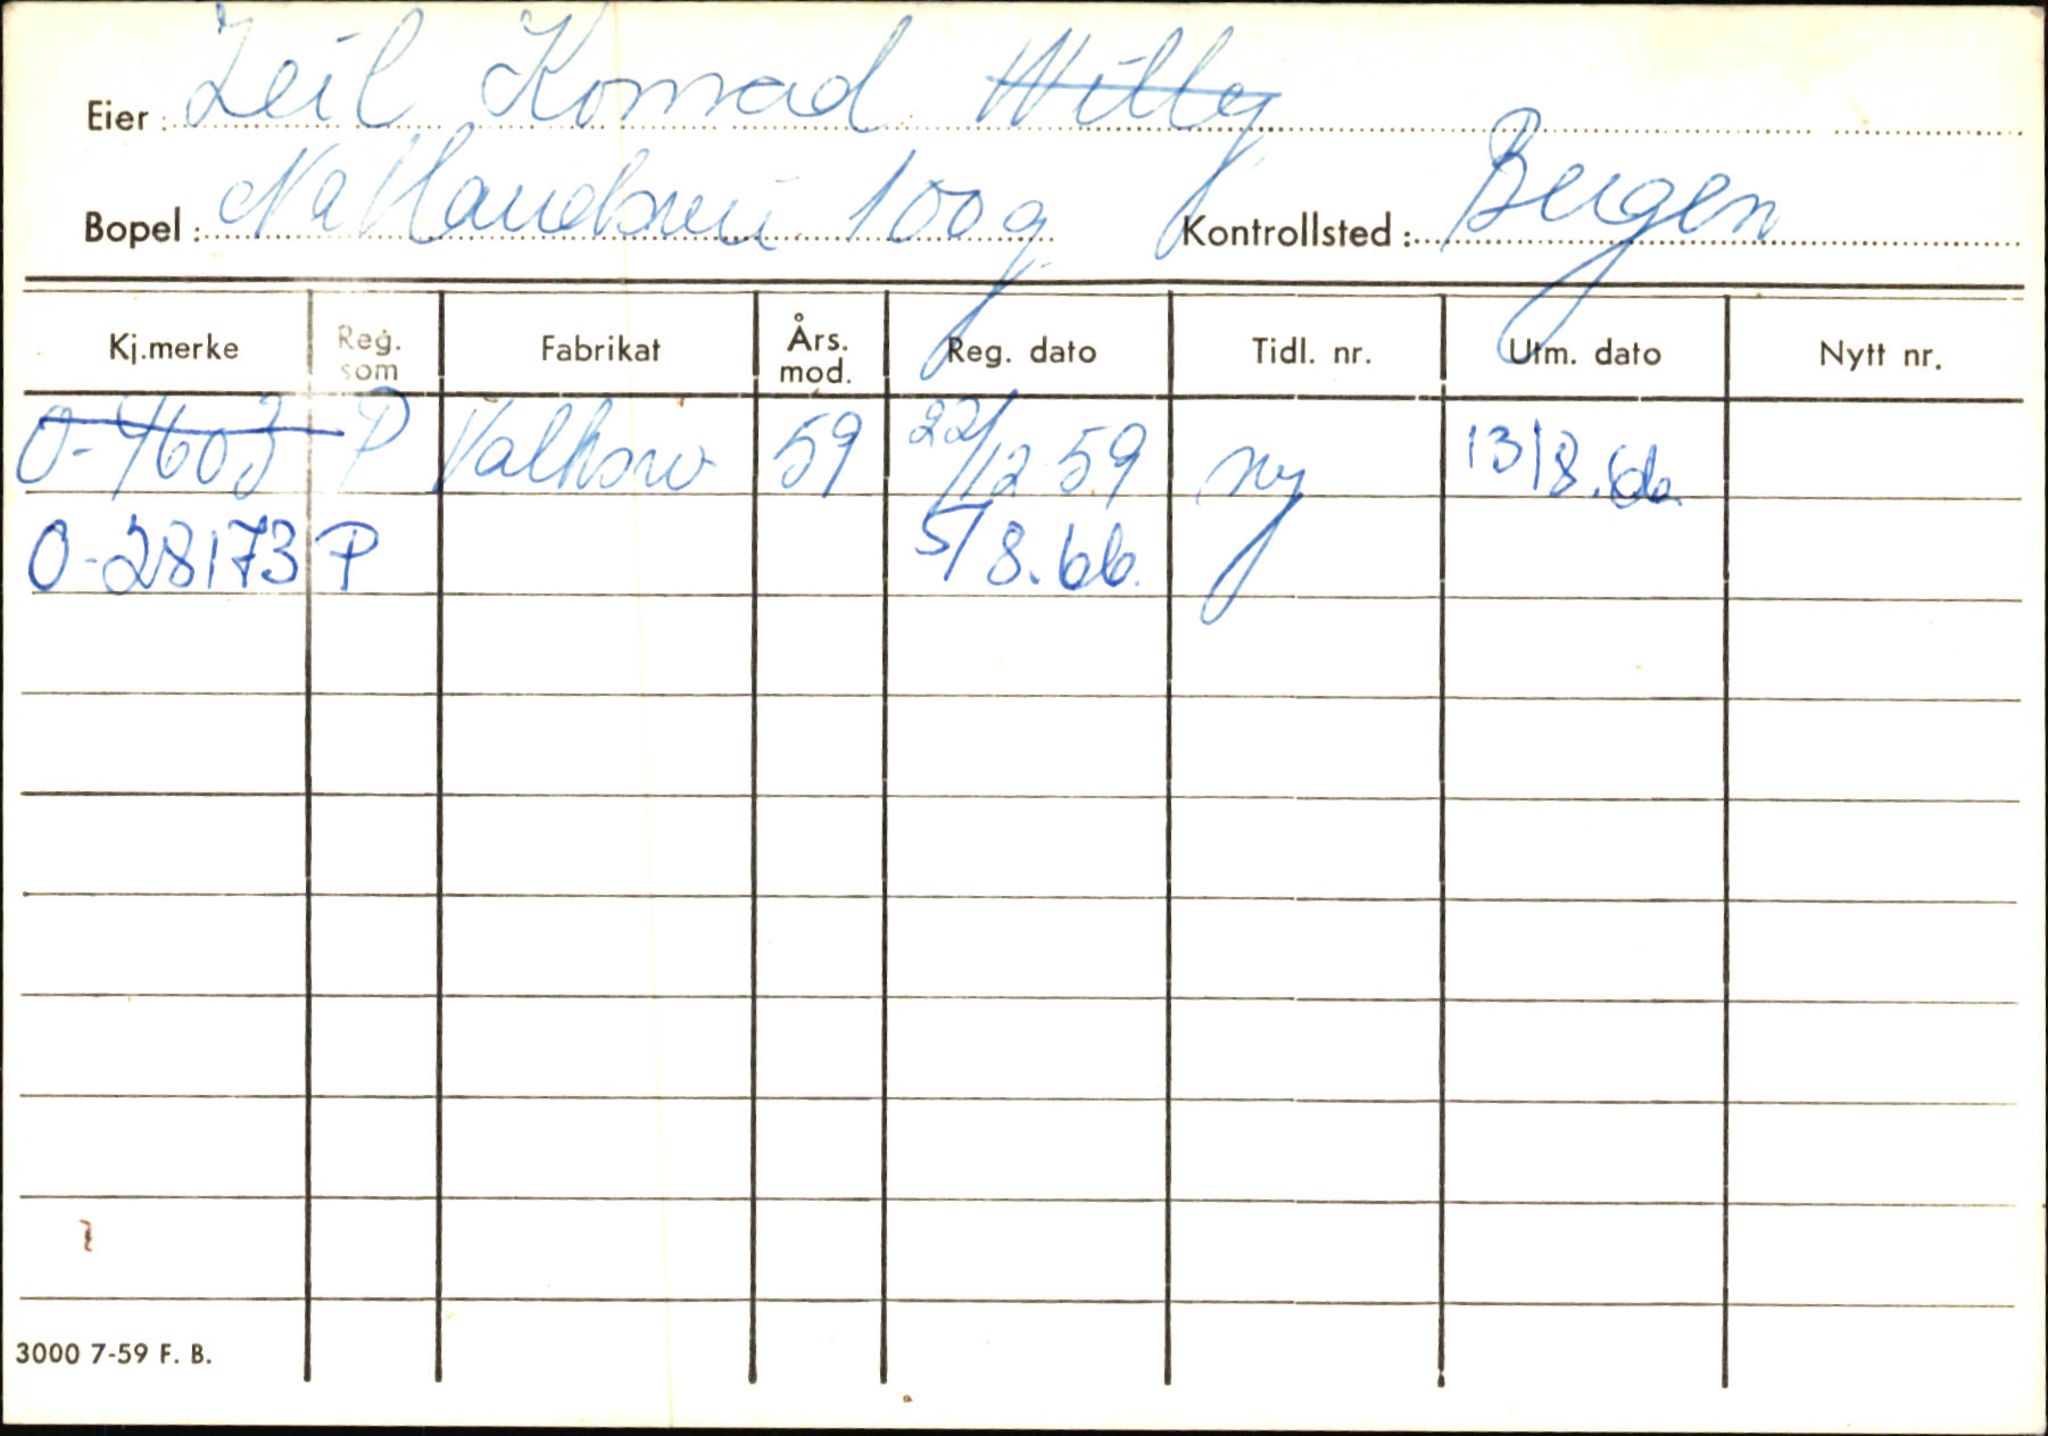 Eier: Zeil Konrad Willy
Bopel: Nattlandsvei 100g Kontrollsted: Bergen
Kj.merke Reg. som Fabrikat Års. mod. Reg. dato Tidl. nr. Utm. dato Nytt nr.
O-4603 P 59 22/12 59 ny 13/8.66.
O-28173 P 5/8.66.
3000 7-59 F. B.